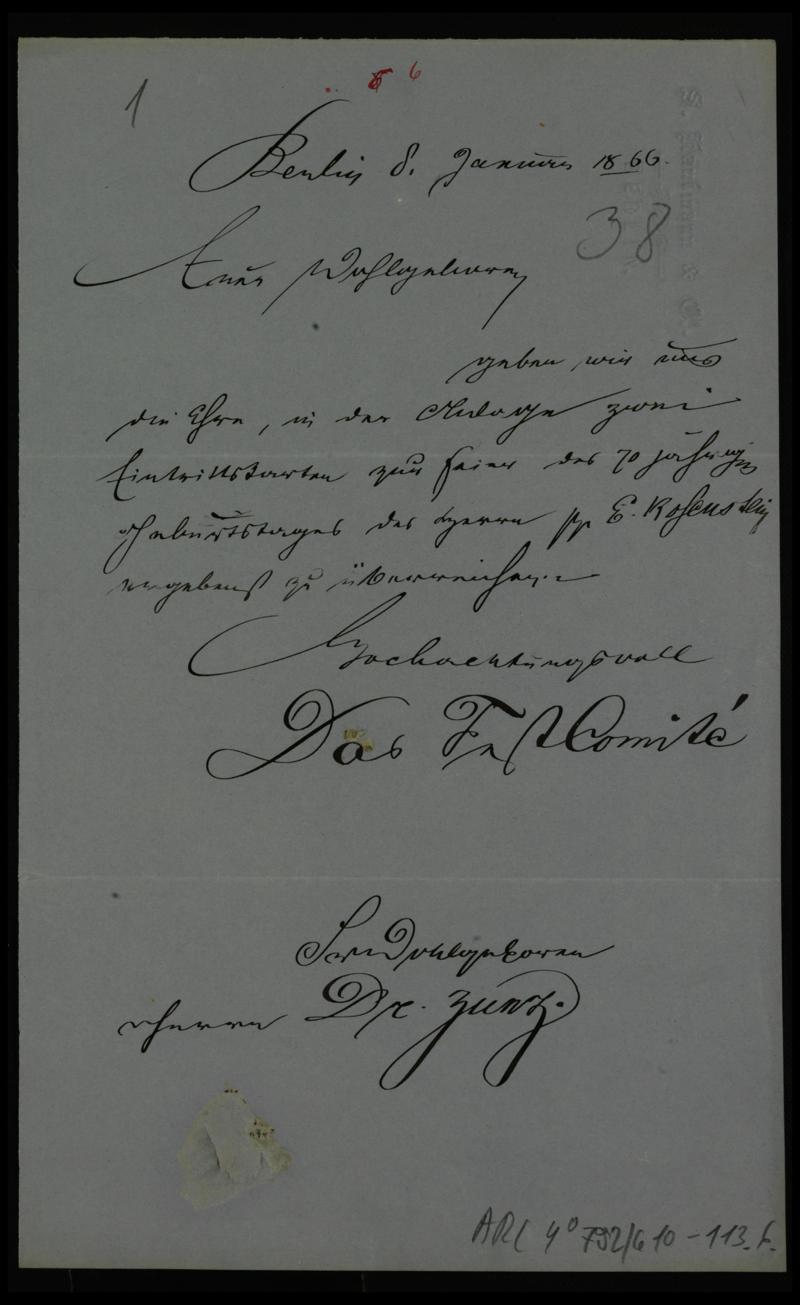 1
6 6
Berlin 8. Januar 1866.
38
Euer Wohlgeboren
geben wir uns
die Ehre, in der Anlage zwei
Eintrittskarten zur Feier des 70 jährigen
Geburtstages des Herrn pp E. Rosenstein
ergebenst zu überreichen.
Hochachtungsvoll
Das FestComité
Sr Wohlgeboren
Herrn Dr. Zunz.
ARC 4° 792/G 10-113.1.